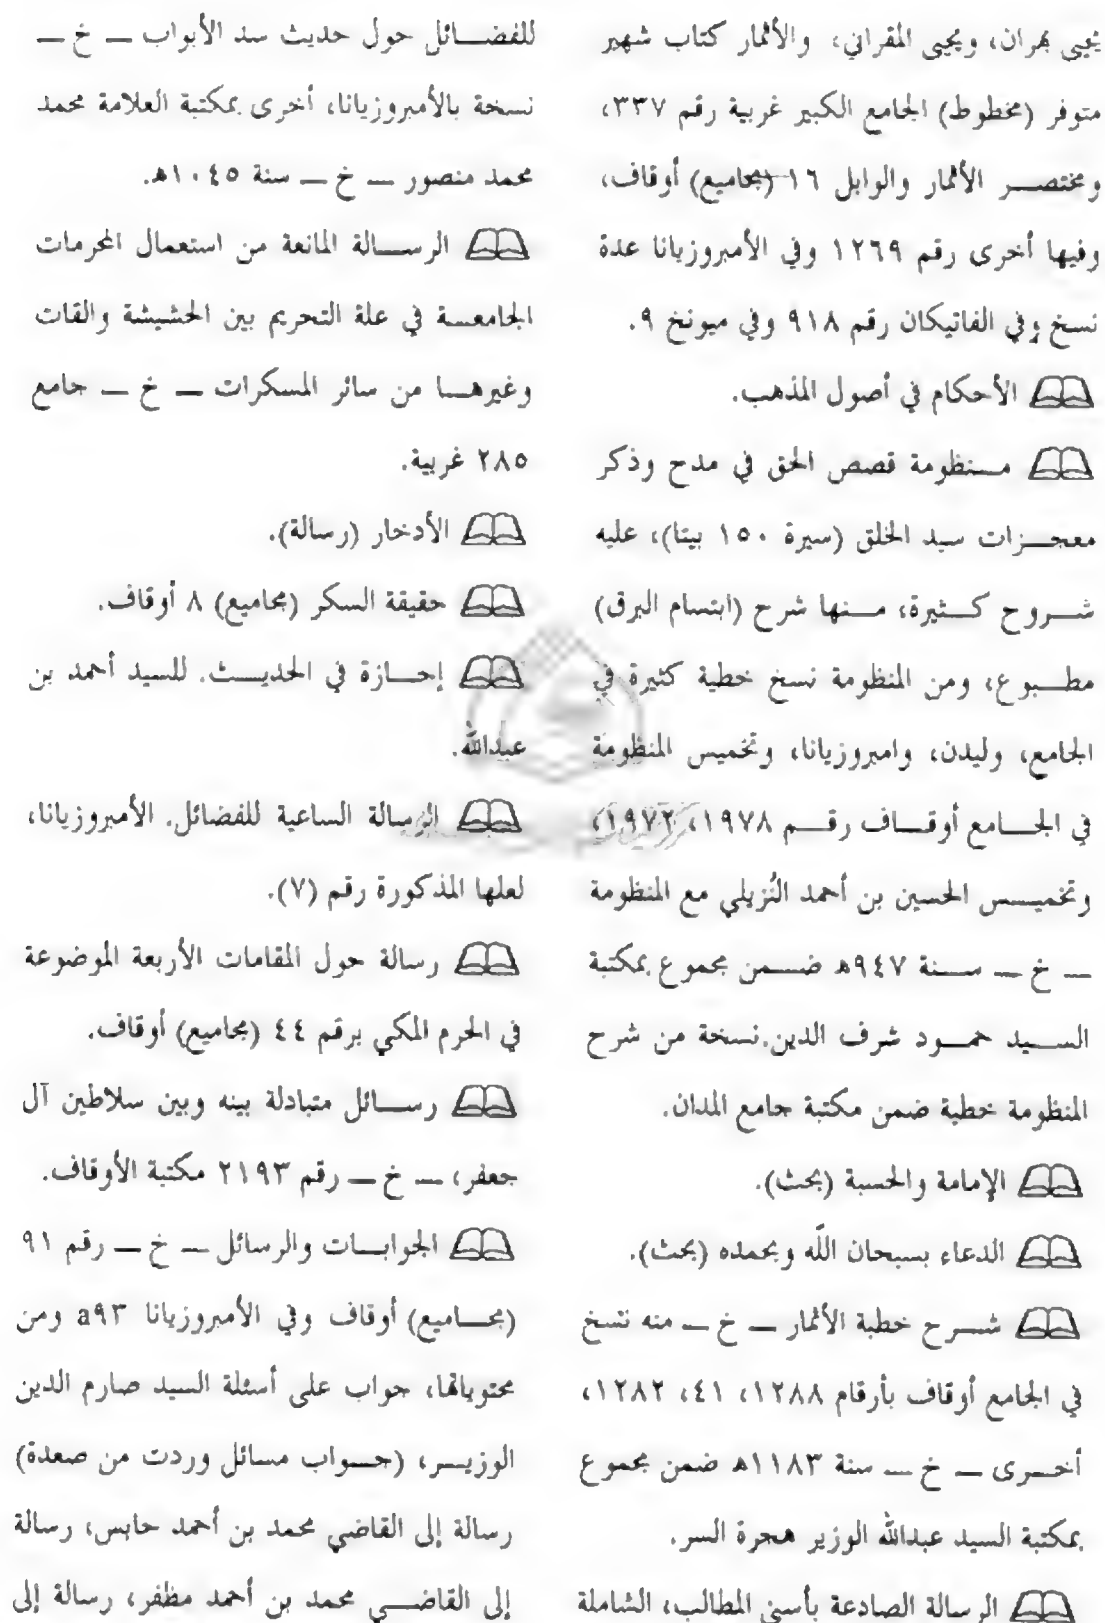 يحيى بهران، ويحيى المقراني، والأثمار كتاب شهير
متوفر (مخطوط) الجامع الكبير غربية رقم ٣٣٧،
ومختصر الأثمار والوابل ١٦ (مجاميع) أوقاف،
وفيها أخرى رقم ١٢٦٩ وفي الأمبروزيانا عدة
نسخ وفي الفاتيكان رقم ٩١٨ وفي ميونخ ٩.
الأحكام في أصول المذهب.
منظومة قصص الحق في مدح وذكر
معجزات سيد الخلق (سيرة ١٥٠ بيتا)، عليه
شروح كثيرة، منها شرح (ابتسام البرق)
مطبوع، ومن المنظومة نسخ خطية كثيرة في
الجامع، وليدن، وامبروزيانا، وتخميس المنظومة
في الجامع أوقاف رقم ١٩٧٨، ١٩٧٢)،
وتخميس الحسين بن أحمد النُزيلي مع المنظومة
ــ خ ــ سنة ٩٤٧هـ ضمن مجموع بمكتبة
السيد حمود شرف الدين.نسخة من شرح
المنظومة خطية ضمن مكتبة جامع المدان.
الإمامة والحسبة (بحث).
الدعاء بسبحان اللّه وبحمده (بحث).
شرح خطبة الأثمار ــ خ ــ منه نسخ
في الجامع أوقاف بأرقام ١٢٨٨، ٤١، ١٢٨٢،
أخرى ــ خ ــ سنة ١١٨٣هـ ضمن مجموع
بمكتبة السيد عبدالله الوزير هجرة السر.
الرسالة الصادعة بأسنى المطالب، الشاملة
للفضائل حول حديث سد الأبواب ــ خ ــ
نسخة بالأمبروزيانا، أخرى بمكتبة العلامة محمد
محمد منصور ــ خ ــ سنة ١٠٤٥هـ.
الرسالة المانعة من استعمال المحرمات
الجامعة في علة التحريم بين الحشيشة والقات
وغيرها من سائر المسكرات ــ خ ــ جامع
٢٨٥ غربية.
الأدخار (رسالة).
حقيقة السكر (مجاميع) ٨ أوقاف.
إجازة في الحديث. للسيد أحمد بن
عبدالله.
الرسالة الساعية للفضائل. الأمبروزيانا،
لعلها المذكورة رقم (٧).
رسالة حول المقامات الأربعة الموضوعة
في الحرم المكي برقم ٤٤ (مجاميع) أوقاف.
رسائل متبادلة بينه وبين سلاطين آل
جعفر، ــ خ ــ رقم ٢١٩٣ مكتبة الأوقاف.
الجوابات والرسائل ــ خ ــ رقم ٩١
(مجاميع) أوقاف وفي الأمبروزيانا a٩٣ ومن
محتوياتها، جواب على أسئلة السيد صارم الدين
الوزير، (جواب مسائل وردت من صعدة)
رسالة إلى القاضي محمد بن أحمد حابس، رسالة
إلى القاضي محمد بن أحمد مظفر، رسالة إلى